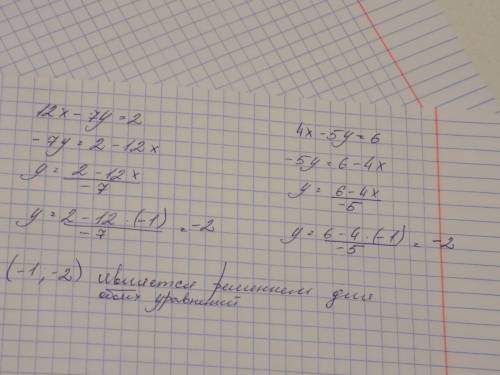 12x - 7y = 2
-7y = 2 - 12x
y = \frac{2 - 12x}{-7}
y = \frac{2 - 12 \cdot (-1)}{-7} = -2
4x - 5y = 6
-5y = 6 - 4x
y = \frac{6 - 4x}{-5}
y = \frac{6 - 4 \cdot (-1)}{-5} = -2
(-1; -2) является решением для
обоих уравнений